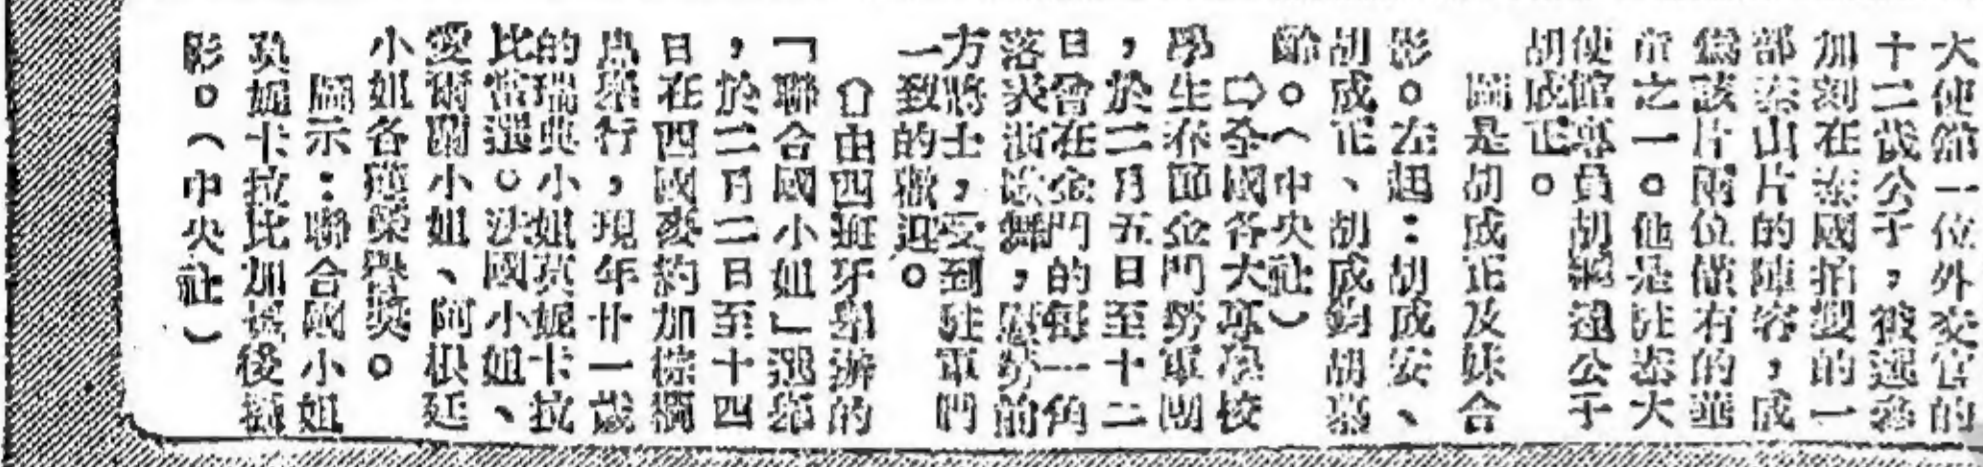 大使館一位外交官的
十二歲公子，被選參
加刻在泰國拍製的一
部泰山片的陣容，成
為該片兩位僅有的華
童之一。他是駐泰大
使館專員胡 遠公子
胡成正。
圖是胡成正及妹合
影。左起：胡成安、
胡成正、胡成鈞胡慕
齡。（中央社）
⇨全國各大專學校
學生春節金門勞軍團
，於二月五日至十二
日曾在金門的每一角
落表演歌舞，慰勞前
方將士，受到駐軍們
一致的歡迎。
⇧由西班牙舉辦的
「聯合國小姐」選舉
，於二月二日至十四
日在四國麥約加棕櫚
島舉行，現年廿一歲
的瑞典小姐 妮卡拉
比當選。法國小姐、
愛爾蘭小姐、阿根廷
小姐各獲榮譽獎。
圖示：聯合國小姐
 妮卡拉比加冕後攝
影。（中央社）